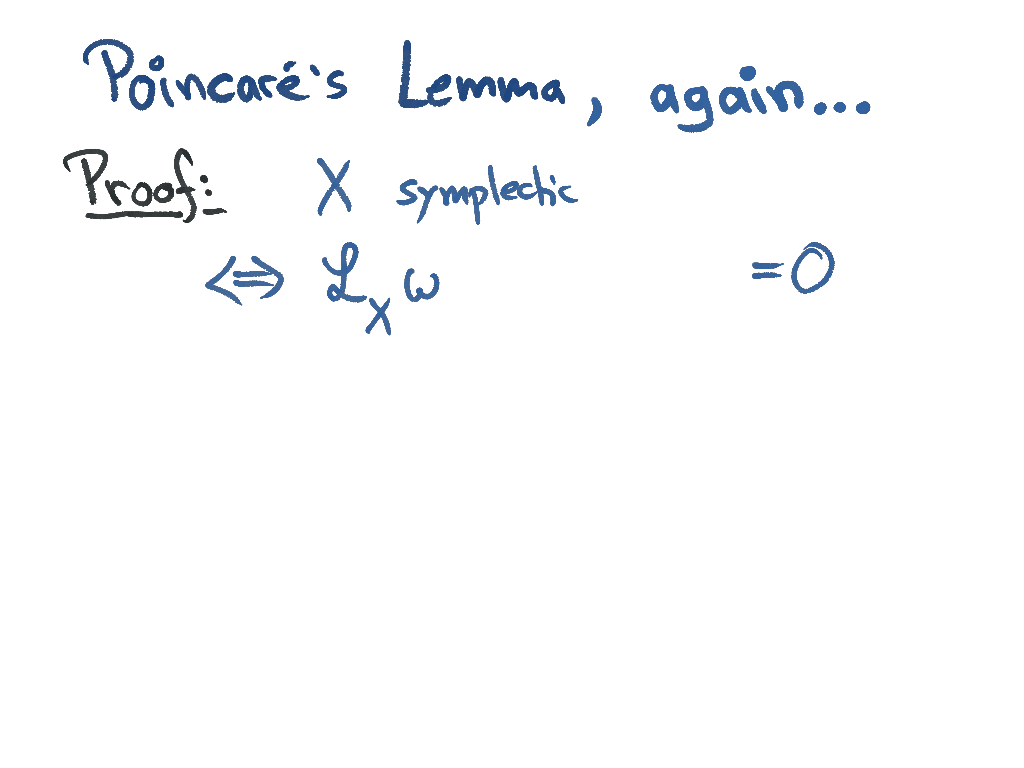 Poincaré's Lemma, again...
Proof: X symplectic
⟺ ℒ_X ω = 0